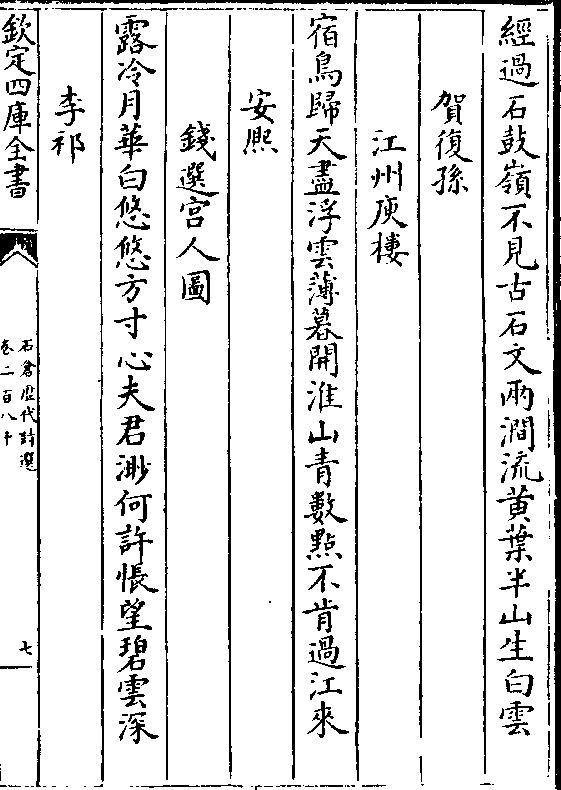 經過石鼓嶺不見古石文兩澗流黄葉半山生白雲
賀復孫
江州庾樓
宿鳥歸天盡浮雲薄暮開淮山青數點不肯過江來
安熙
錢選宫人圖
露冷月華白悠悠方寸心夫君渺何許悵望碧雲深
李祁
欽定四庫全書
石倉歴代詩選
卷二百八十
七